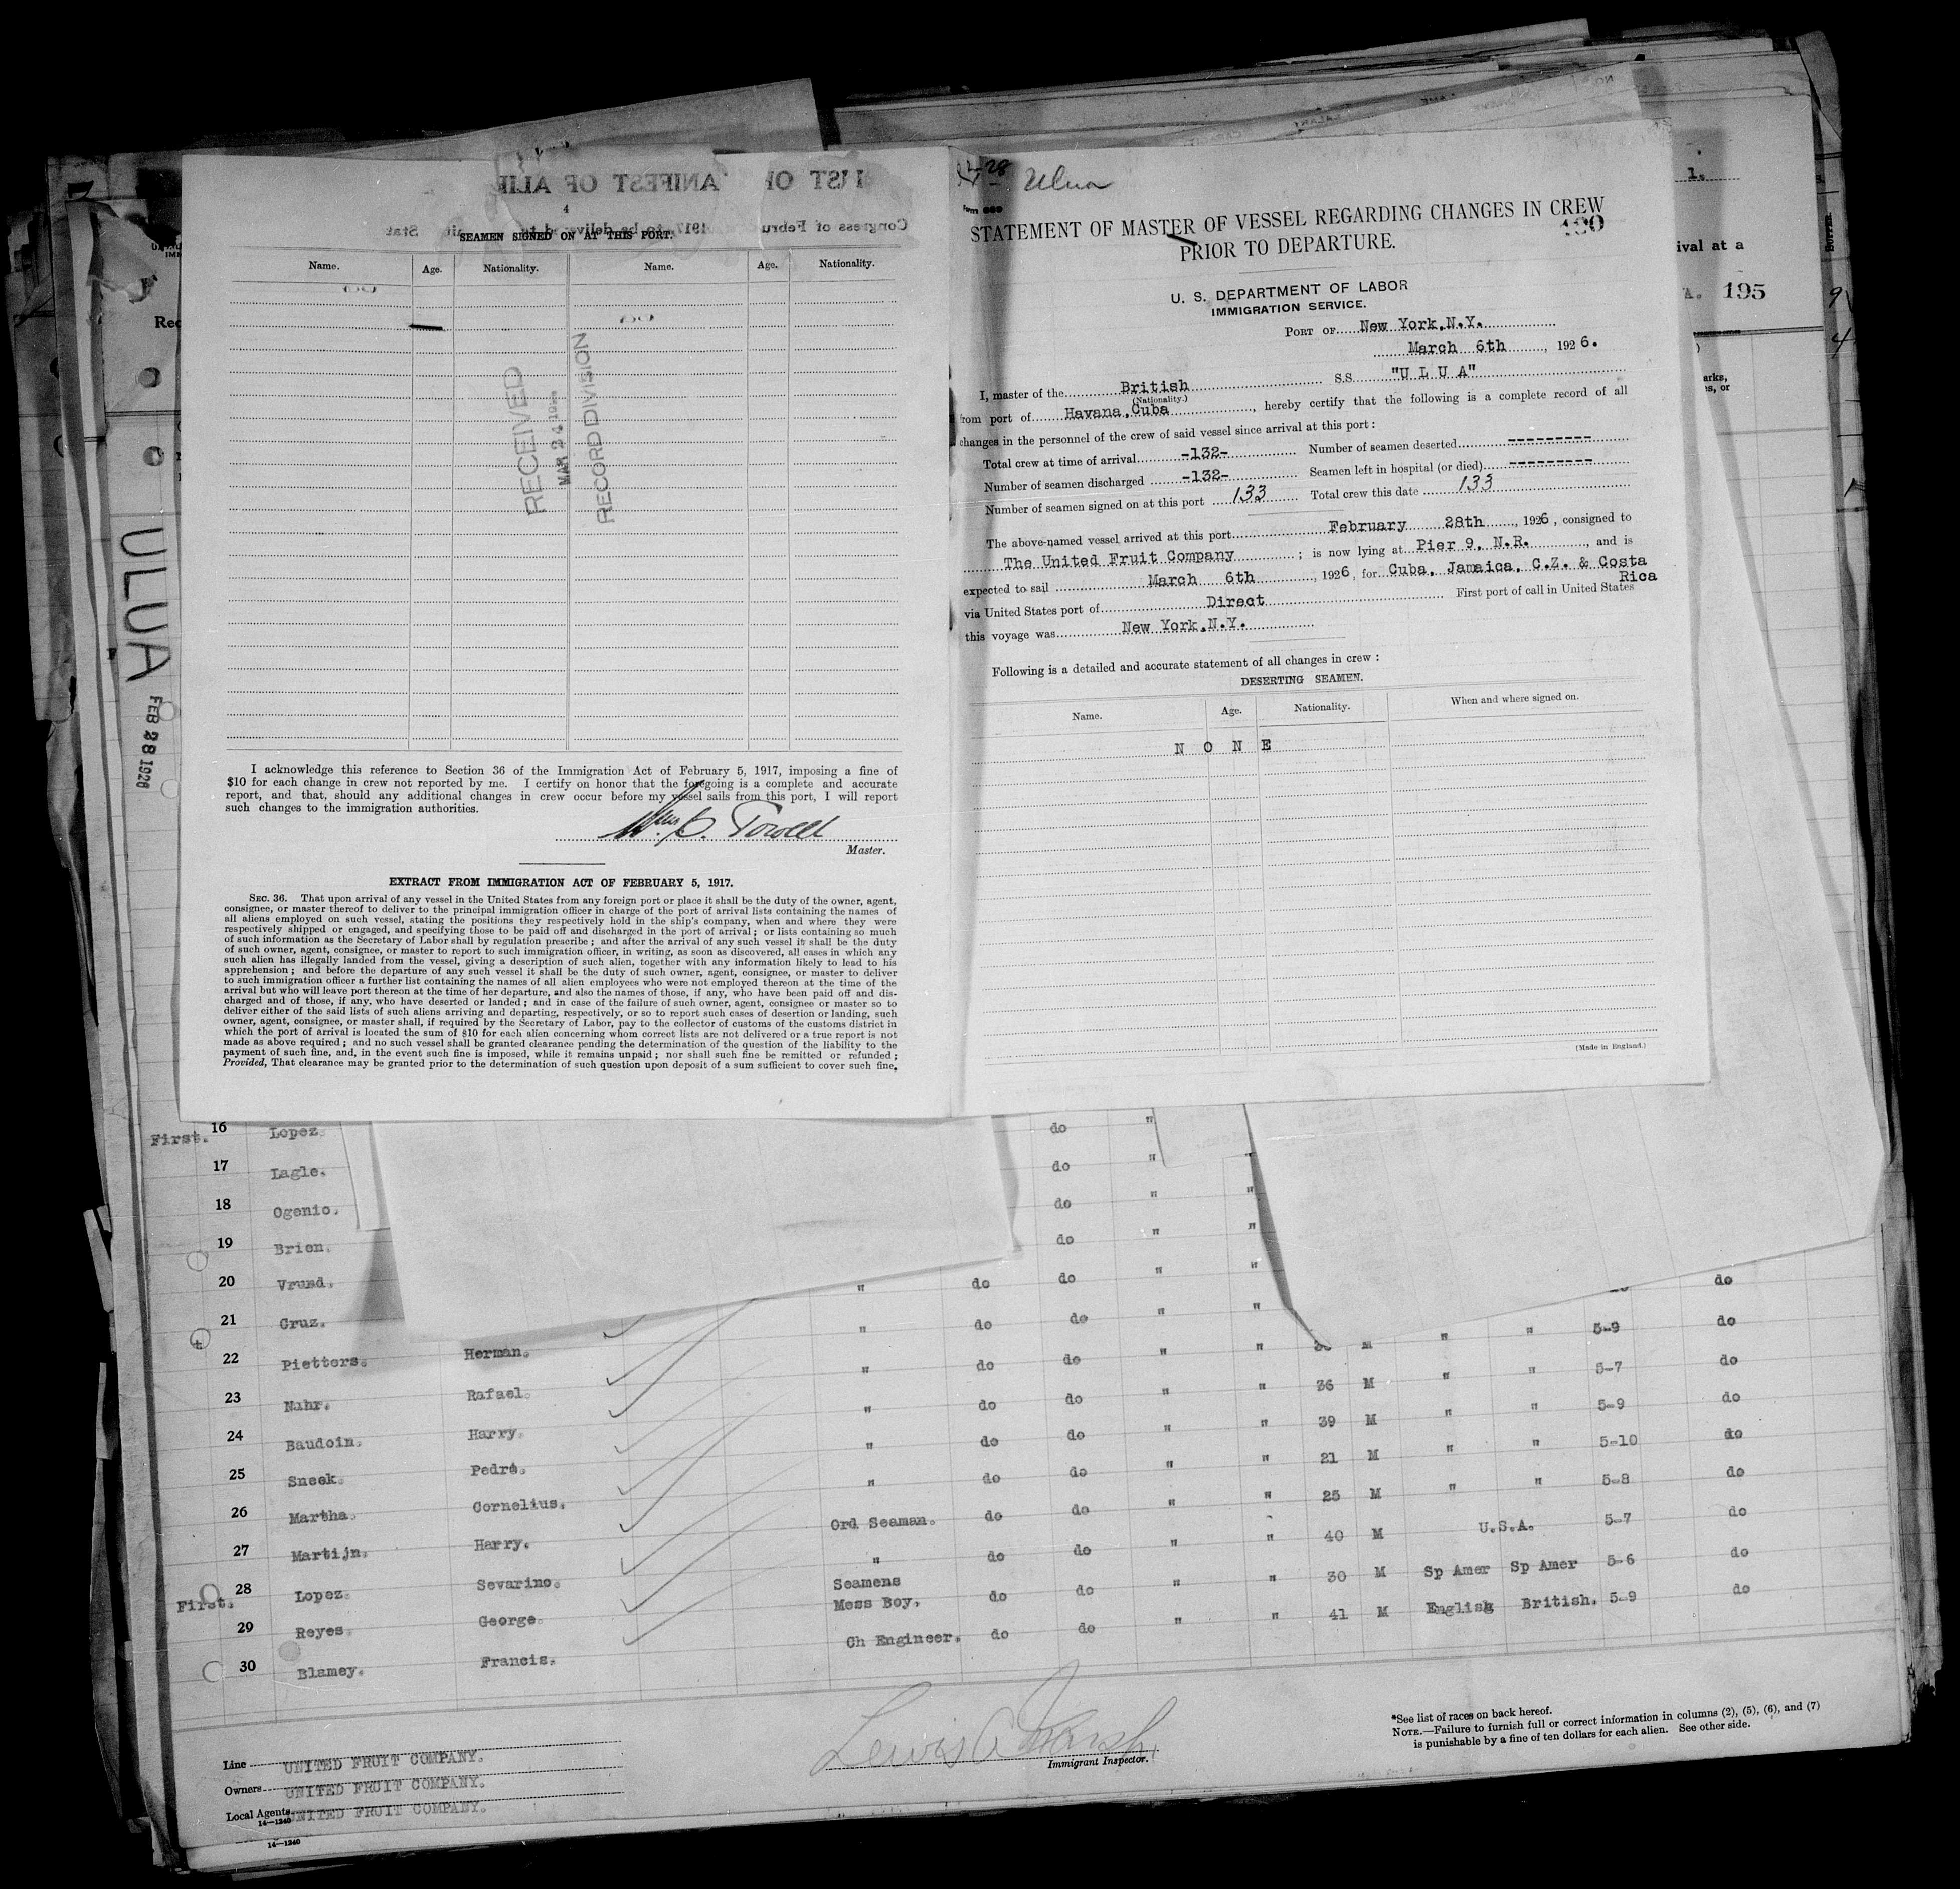 SEAMEN SIGNED ON AT THIS PORT.
4
Name. Age. Nationality. Name. Age. Nationality.
RECEIVED
MAR 24
RECORD DIVISION
I acknowledge this reference to Section 36 of the Immigration Act of February 5, 1917, imposing a fine of
$10 for each change in crew not reported by me. I certify on honor that the foregoing is a complete and accurate
report, and that, should any additional changes in crew occur before my vessel sails from this port, I will report
such changes to the immigration authorities.
Master.
EXTRACT FROM IMMIGRATION ACT OF FEBRUARY 5, 1917.
SEC. 36. That upon arrival of any vessel in the United States from any foreign port or place it shall be the duty of the owner, agent,
consignee, or master thereof to deliver to the principal immigration officer in charge of the port of arrival lists containing the names of
all aliens employed on such vessel, stating the positions they respectively hold in the ship's company, when and where they were
respectively shipped or engaged, and specifying those to be paid off and discharged in the port of arrival; or lists containing so much
of such information as the Secretary of Labor shall by regulation prescribe; and after the arrival of any such vessel it shall be the duty
of such owner, agent, consignee, or master to report to such immigration officer, in writing, as soon as discovered, all cases in which any
such alien has illegally landed from the vessel, giving a description of such alien, together with any information likely to lead to his
apprehension; and before the departure of any such vessel it shall be the duty of such owner, agent, consignee, or master to deliver
to such immigration officer a further list containing the names of all alien employees who were not employed thereon at the time of the
arrival but who will leave port thereon at the time of her departure, and also the names of those, if any, who have been paid off and dis-
charged and of those, if any, who have deserted or landed; and in case of the failure of such owner, agent, consignee or master so to
deliver either of the said lists of such aliens arriving and departing, respectively, or so to report such cases of desertion or landing, such
owner, agent, consignee, or master shall, if required by the Secretary of Labor, pay to the collector of customs of the customs district in
which the port of arrival is located the sum of $10 for each alien concerning whom correct lists are not delivered or a true report is not
made as above required; and no such vessel shall be granted clearance pending the determination of the question of the liability to the
payment of such fine, and, in the event such fine is imposed, while it remains unpaid; nor shall such fine be remitted or refunded;
Provided, That clearance may be granted prior to the determination of such question upon deposit of a sum sufficient to cover such fine,
Ulua
STATEMENT OF MASTER OF VESSEL REGARDING CHANGES IN CREW
PRIOR TO DEPARTURE.
190
U. S. DEPARTMENT OF LABOR
IMMIGRATION SERVICE.
PORT OF New York,N.Y.
March 6th, 1926.
I, master of the British S.S. "U L U A"
(Nationality.)
from port of Havana,Cuba, hereby certify that the following is a complete record of all
changes in the personnel of the crew of said vessel since arrival at this port:
Total crew at time of arrival -132- Number of seamen deserted ---------
Number of seamen discharged -132- Seamen left in hospital (or died) ---------
Number of seamen signed on at this port 133 Total crew this date 133
The above-named vessel arrived at this port February 28th, 1926, consigned to
The United Fruit Company; is now lying at Pier 9, N.R., and is
expected to sail March 6th, 1926, for Cuba, Jamaica, C.Z. & Costa
Rica
via United States port of Direct First port of call in United States
this voyage was New York,N.Y.
Following is a detailed and accurate statement of all changes in crew:
DESERTING SEAMEN.
Name. Age. Nationality. When and where signed on.
N O N E
(Made in England.)
1.
ival at a
195
ULUA
FEB 28 1926
First. 16 Lopez do "
17 Lagle. do " "
18 Ogenio. do " "
19 Brien. do " "
20 Vrusd. " do do " " do
21 Cruz. " do do " " " " 5-9 do
22 Pietters. Herman. " do do " " M " " 5-7 do
23 Nahr. Rafael. " do do " " 36 M " " 5-9 do
24 Baudoin. Harry. " do do " " 39 M " " 5-10 do
25 Sneek. Pedro. " do do " " 21 M " " 5-8 do
26 Martha. Cornelius. Ord Seaman. do do " " 25 M U.S.A. 5-7 do
27 Martijn. Harry. " do do " " 40 M Sp Amer Sp Amer 5-6 do
First. 28 Lopez. Severino. Seamens
Mess Boy. do do " " 30 M English British. 5-9 do
29 Reyes. George. Ch Engineer. do do " " 41 M
30 Blamey. Francis.
Line UNITED FRUIT COMPANY.
Owners UNITED FRUIT COMPANY.
Local Agents UNITED FRUIT COMPANY.
14—1240
14—1240
Lewis A Marsh
Immigrant Inspector.
*See list of races on back hereof.
NOTE.—Failure to furnish full or correct information in columns (2), (5), (6), and (7)
is punishable by a fine of ten dollars for each alien. See other side.